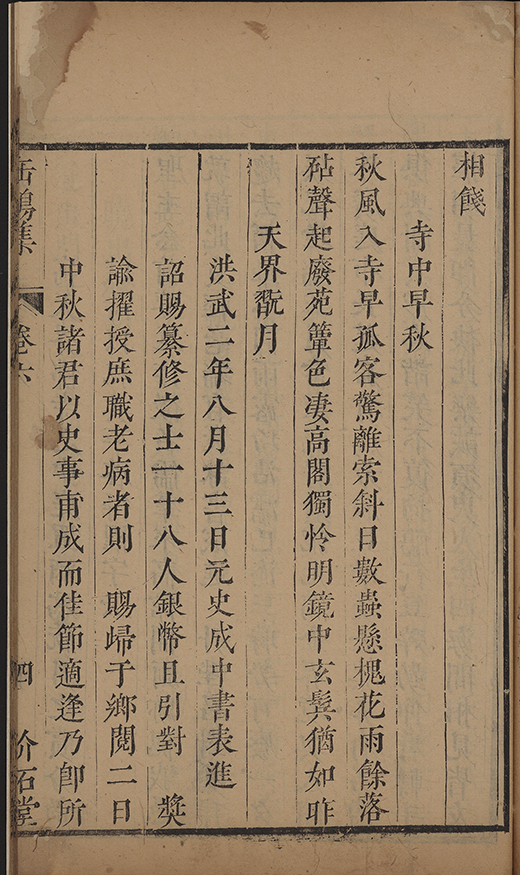 相餞
寺中早秋
秋風入寺早孤客驚離索斜日數蟲懸槐花雨餘落
砧聲起廢苑簟色凄高閣獨怜明鏡中玄鬂猶如昨
天界翫月
洪武二年八月十三日元史成中書表進
詔賜纂修之士一十八人銀幣且引對 奬
諭擢授庶職老病者則 賜歸于鄉閱二日
中秋諸君以史事甫成而佳節適逢乃卽所
缶鳴集 卷六 四 竹石堂